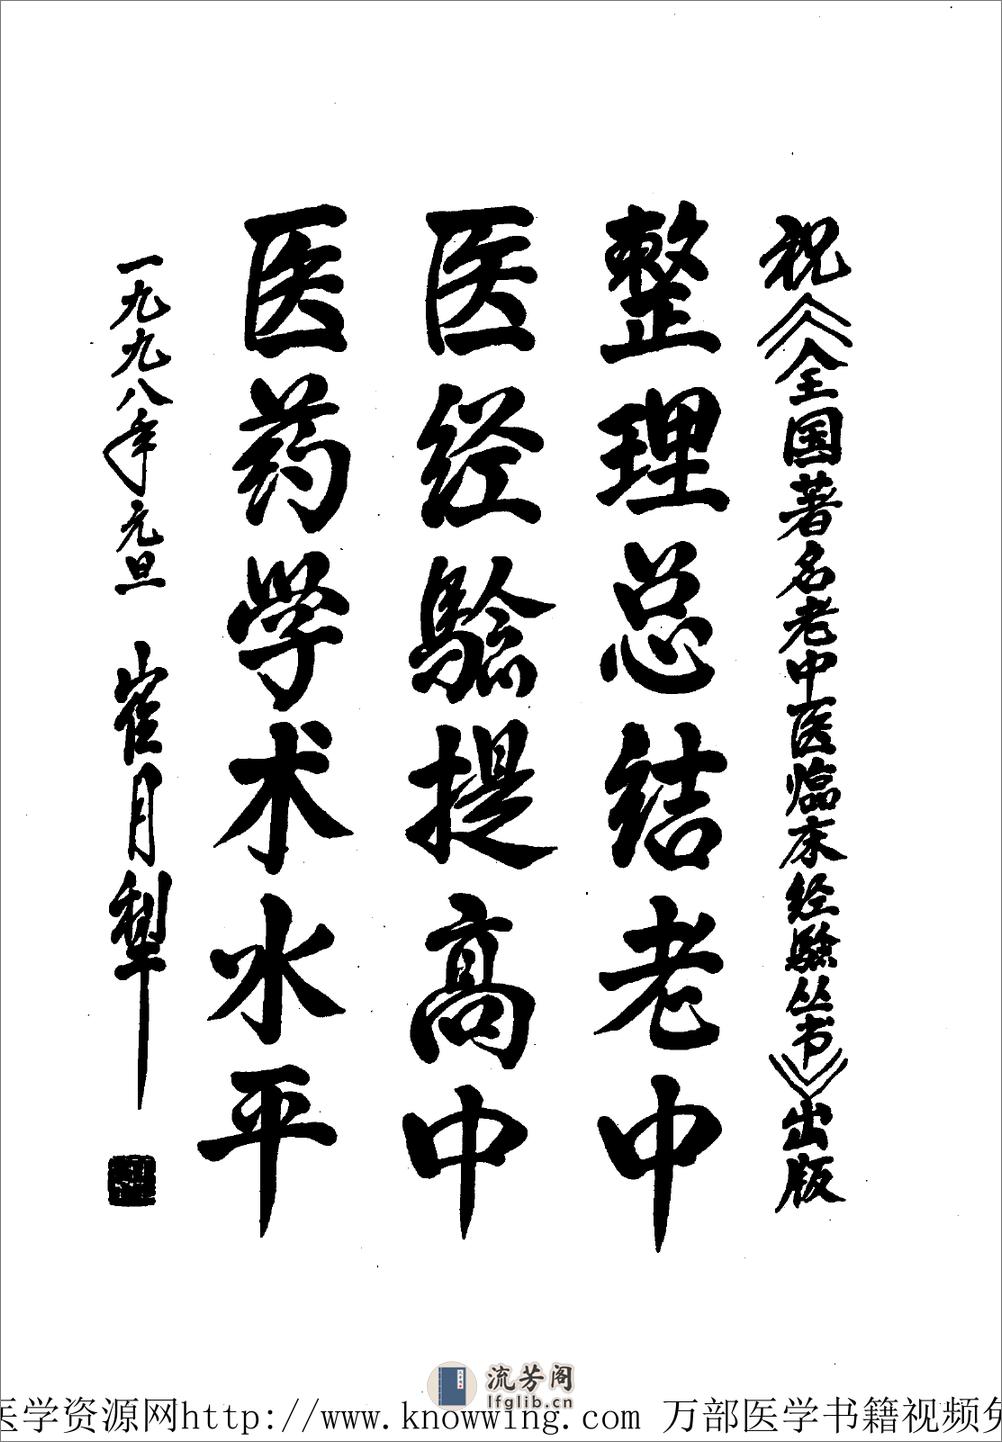 祝《全国著名老中医临床经验丛书》出版
整理总结老中
医经验提高中
医药学术水平
一九九八年元旦 崔月犁
流芳阁
lfglib.cn
医学资源网http://www.knowwing.com 万部医学书籍视频免